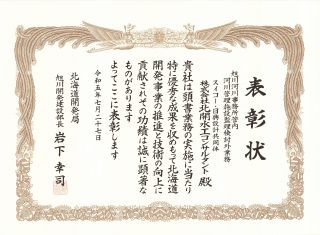 表彰状
旭川河川事務所管内
河川管理施設監理検討外業務
スイコー・白興設計共同体
株式会社北開水工コンサルタント 殿
貴社は頭書業務の実施に当たり
特に優秀な成果を収めもって北海道
開発事業の推進と技術の向上に
貢献されその功績は誠に顕著な
ものがあります
よってここに表彰します
令和五年七月二十七日
北海道開発局
旭川開発建設部長 岩下幸司